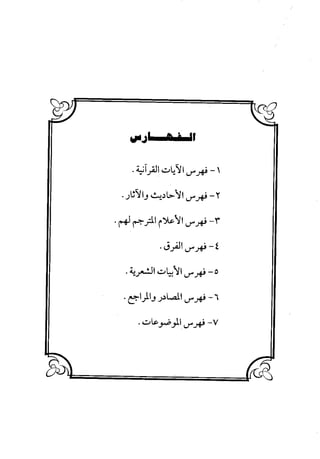 الفهارس
١- فهرس الآيات القرآنية .
٢- فهرس الأحاديث والآثار .
٣- فهرس الأعلام المترجم لهم .
٤- فهرس الفرق .
٥- فهرس الأبيات الشعرية .
٦- فهرس المصادر والمراجع .
٧- فهرس الموضوعات .